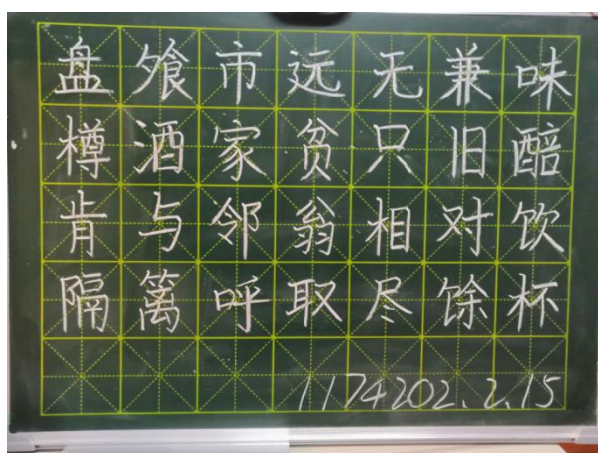 盘飧市远无兼味
樽酒家贫只旧醅
肯与邻翁相对饮
隔篱呼取尽馀杯
1174202.2.15